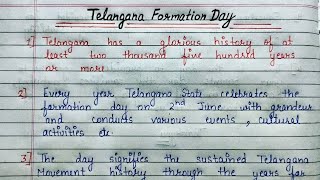 Telangana Formation Day
1] Telangana has a glorious history of at
least two thousand five hundred years
or more.
2] Every year Telangana State celebrates the
formation day on 2nd June with grandeur
and conducts various events, cultural
activities etc.
3] The day signifies the sustained Telangana
Movement history through the years for